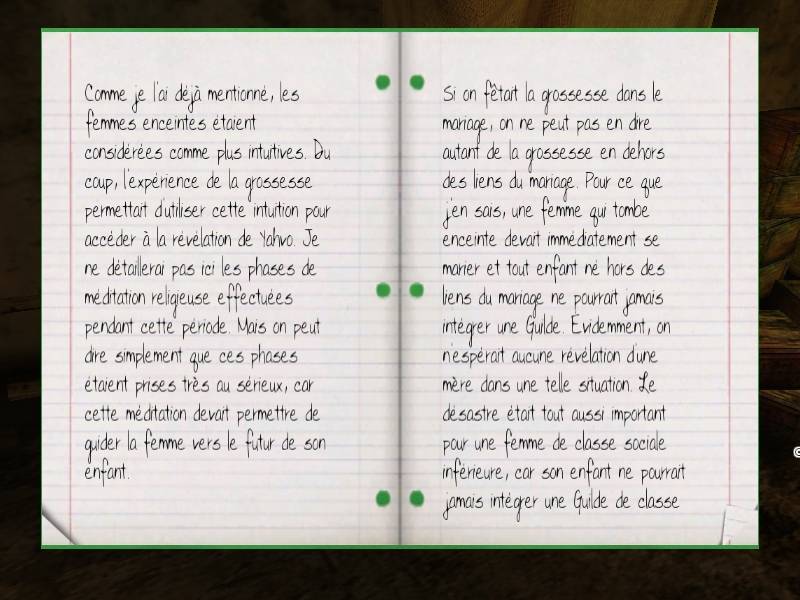 Comme je l'ai déjà mentionné, les
femmes enceintes étaient
considérées comme plus intuitives. Du
coup, l'expérience de la grossesse
permettait d'utiliser cette intuition pour
accéder à la révélation de Yahvo. Je
ne détaillerai pas ici les phases de
méditation religieuse effectuées
pendant cette période. Mais on peut
dire simplement que ces phases
étaient prises très au sérieux, car
cette méditation devait permettre de
guider la femme vers le futur de son
enfant.
Si on fêtait la grossesse dans le
mariage, on ne peut pas en dire
autant de la grossesse en dehors
des liens du mariage. Pour ce que
j'en sais, une femme qui tombe
enceinte devait immédiatement se
marier et tout enfant né hors des
liens du mariage ne pourrait jamais
intégrer une Guilde. Évidemment, on
n'espérait aucune révélation d'une
mère dans une telle situation. Le
désastre était tout aussi important
pour une femme de classe sociale
inférieure, car son enfant ne pourrait
jamais intégrer une Guilde de classe
©